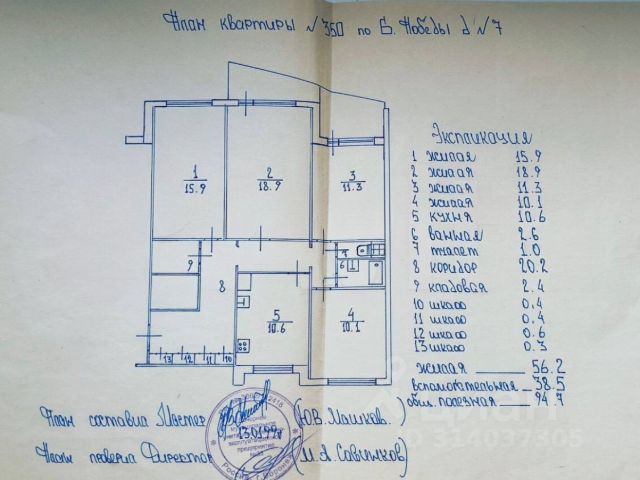 План квартиры №350 по Б. Победы д №7
Экспликация
1 жилая 15.9
2 жилая 18.9
3 жилая 11.3
4 жилая 10.1
5 кухня 10.6
6 ванная 2.6
7 туалет 1.0
8 коридор 20.2
9 кладовая 2.4
10 шкаф 0.4
11 шкаф 0.4
12 шкаф 0.6
13 шкаф 0.3
жилая 56.2
вспомогательная 38.5
общ. полезная 94.7
1
15.9
2
18.9
3
11.3
9
8
7
6
5
10.6
4
10.1
13 12 11 10
План составил Мастер (Ю.В. Машков.)
План проверил Директор (М.А. Савинков)